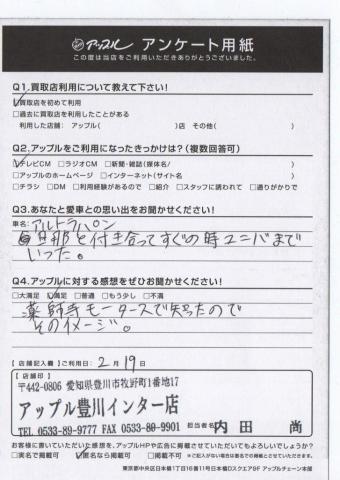 アップル アンケート用紙
この度は当店をご利用いただきありがとうございました。
Q1.買取店利用について教えて下さい!
☑買取店を初めて利用
□過去に買取店を利用したことがある
利用した店舗: アップル( )店 その他( )
Q2.アップルをご利用になったきっかけは?(複数回答可)
☑テレビCM □ラジオCM □新聞・雑誌(媒体名/ )
□アップルのホームページ □インターネット(サイト名 )
□チラシ □DM □利用経験があるので □紹介 □スタッフに誘われて □通りがかりで
Q3.あなたと愛車との思い出をお聞かせください!
車名:アルトラパン
旦那と付き合ってすぐの時ユニバまで
いった。
Q4.アップルに対する感想をぜひお聞かせください!
□大満足 ☑満足 □普通 □もう少し □不満
薬師寺モータースで知ったので
そのイメージ。
【店舗記入欄】ご利用日: 2月19日
【店舗印】
〒442-0806 愛知県豊川市牧野町1番地17
アップル豊川インター店
TEL 0533-89-9777 FAX 0533-89-9901 担当者名 内田 尚
お客様に書いていただいた感想を、アップルHPや広告に掲載させていただいてもよろしいでしょうか?
□実名で掲載可 ☑匿名なら掲載可 □掲載不可 ※ご記入がない場合は匿名での掲載とさせていただきます。
東京都中央区日本橋1丁目16番11号日本橋Dスクエア9F アップルチェーン本部